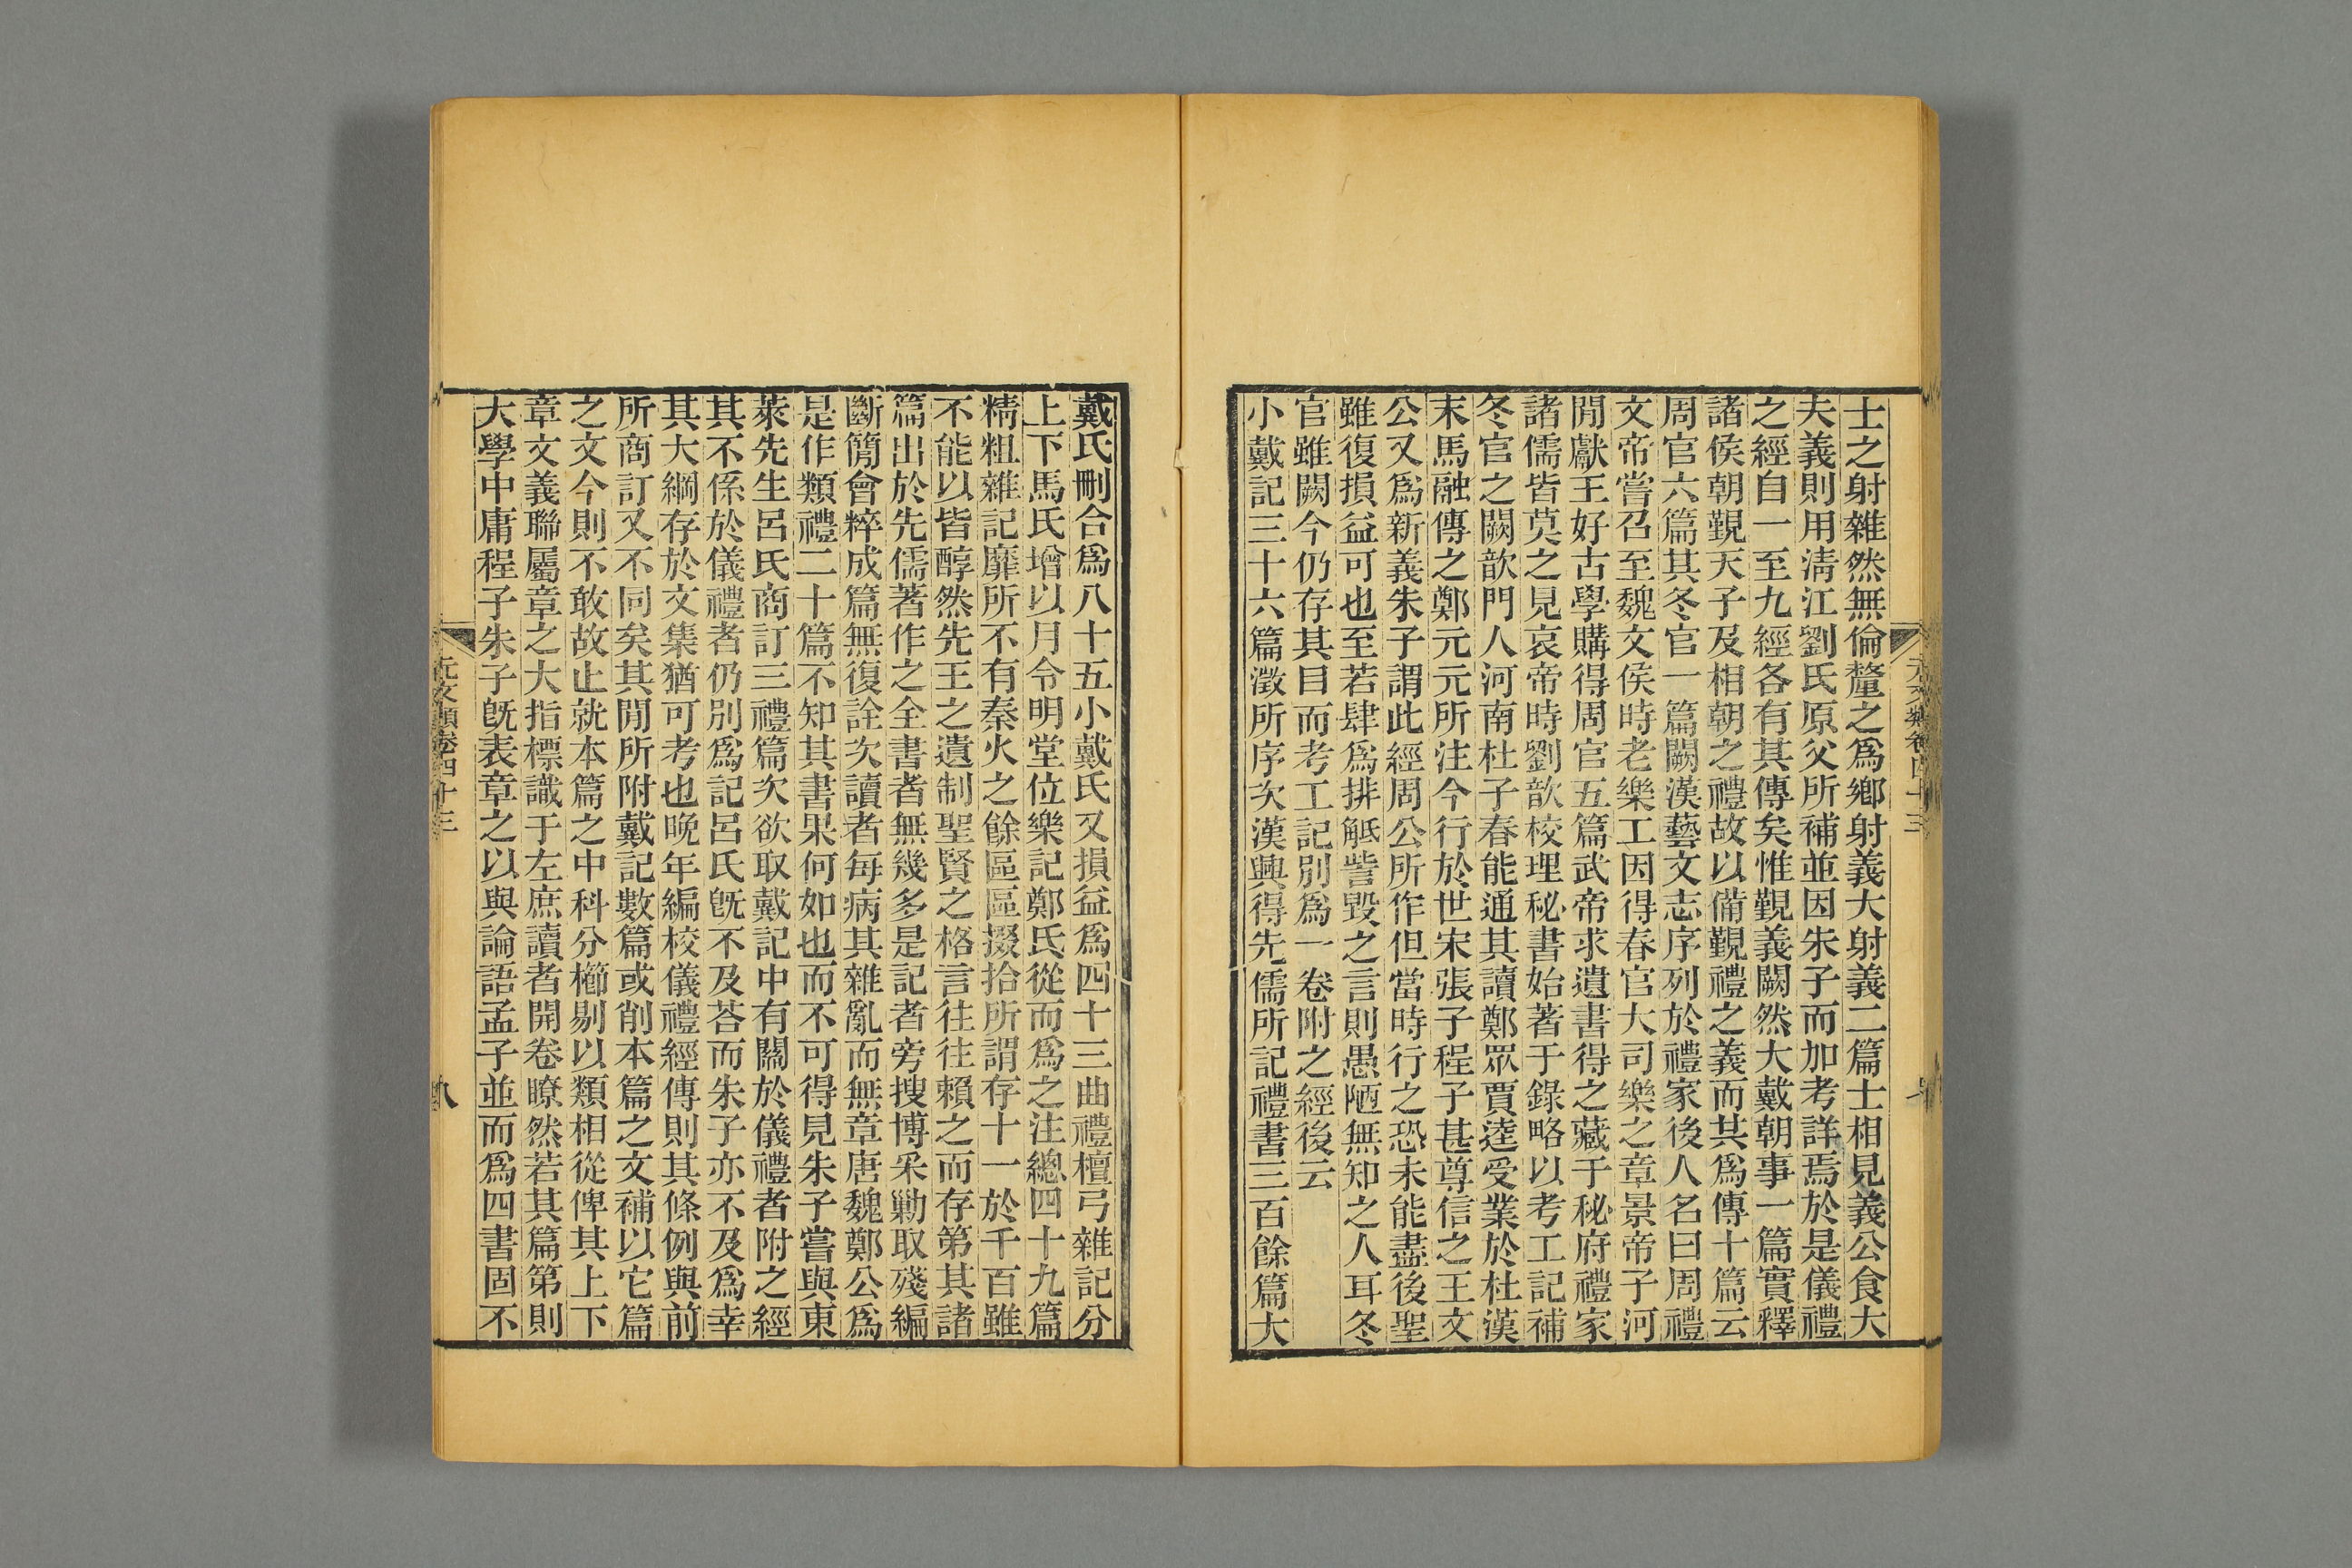 士之射雜然無倫釐之爲鄉射義大射義二篇士相見義公食大
夫義則用清江劉氏原父所補並因朱子而加考詳焉於是儀禮
之經自一至九經各有其傳矣惟覲義闕然大戴朝事一篇實釋
諸侯朝覲天子及相朝之禮故以備覲禮之義而其爲傳十篇云
周官六篇其冬官一篇闕漢藝文志序列於禮家後人名曰周禮
文帝嘗召至魏文侯時老樂工因得春官大司樂之章景帝子河
閒獻王好古學購得周官五篇武帝求遺書得之藏于秘府禮家
諸儒皆莫之見哀帝時劉歆校理秘書始著于錄略以考工記補
冬官之闕歆門人河南杜子春能通其讀鄭眾賈逵受業於杜漢
末馬融傳之鄭元元所注今行於世宋張子程子甚尊信之王文
公又爲新義朱子謂此經周公所作但當時行之恐未能盡後聖
雖復損益可也至若肆爲排觝訾毀之言則愚陋無知之人耳冬
官雖闕今仍存其目而考工記別爲一卷附之經後云
小戴記三十六篇澂所序次漢興得先儒所記禮書三百餘篇大
戴氏刪合爲八十五小戴氏又損益爲四十三曲禮檀弓雜記分
上下馬氏增以月令明堂位樂記鄭氏從而爲之注總四十九篇
精粗雜記靡所不有秦火之餘區區掇拾所謂存十一於千百雖
不能以皆醇然先王之遺制聖賢之格言往往賴之而存第其諸
篇出於先儒著作之全書者無幾多是記者旁搜博采勦取殘編
斷簡會粹成篇無復詮次讀者每病其雜亂而無章唐魏鄭公爲
是作類禮二十篇不知其書果何如也而不可得見朱子嘗與東
萊先生呂氏商訂三禮篇次欲取戴記中有關於儀禮者附之經
其不係於儀禮者仍別爲記呂氏旣不及荅而朱子亦不及爲幸
其大綱存於文集猶可考也晚年編校儀禮經傳則其條例與前
所商訂又不同矣其閒所附戴記數篇或削本篇之文補以它篇
之文今則不敢故止就本篇之中科分櫛剔以類相從俾其上下
章文義聯屬章之大指標識于左庶讀者開卷瞭然若其篇第則
大學中庸程子朱子旣表章之以與論語孟子並而爲四書固不
元文類卷四十三
八